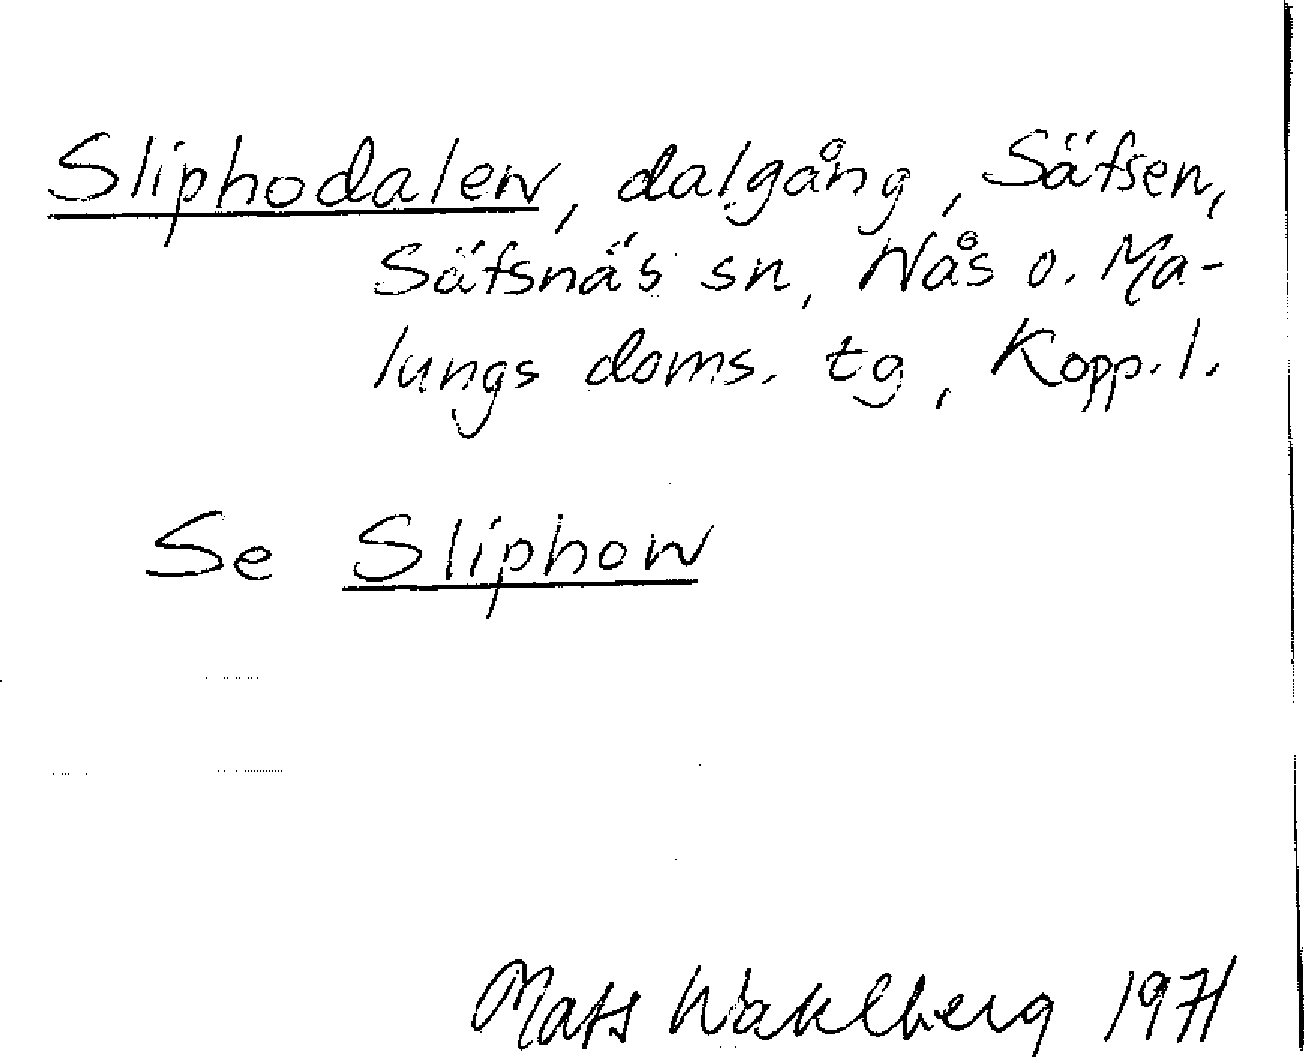 Sliphodalen, dalgång, Säfsen,
Säfsnäs sn, Nås o. Ma-
lungs doms. tg, Kopp. l.
Se Sliphon
Mats Wahlberg 1971